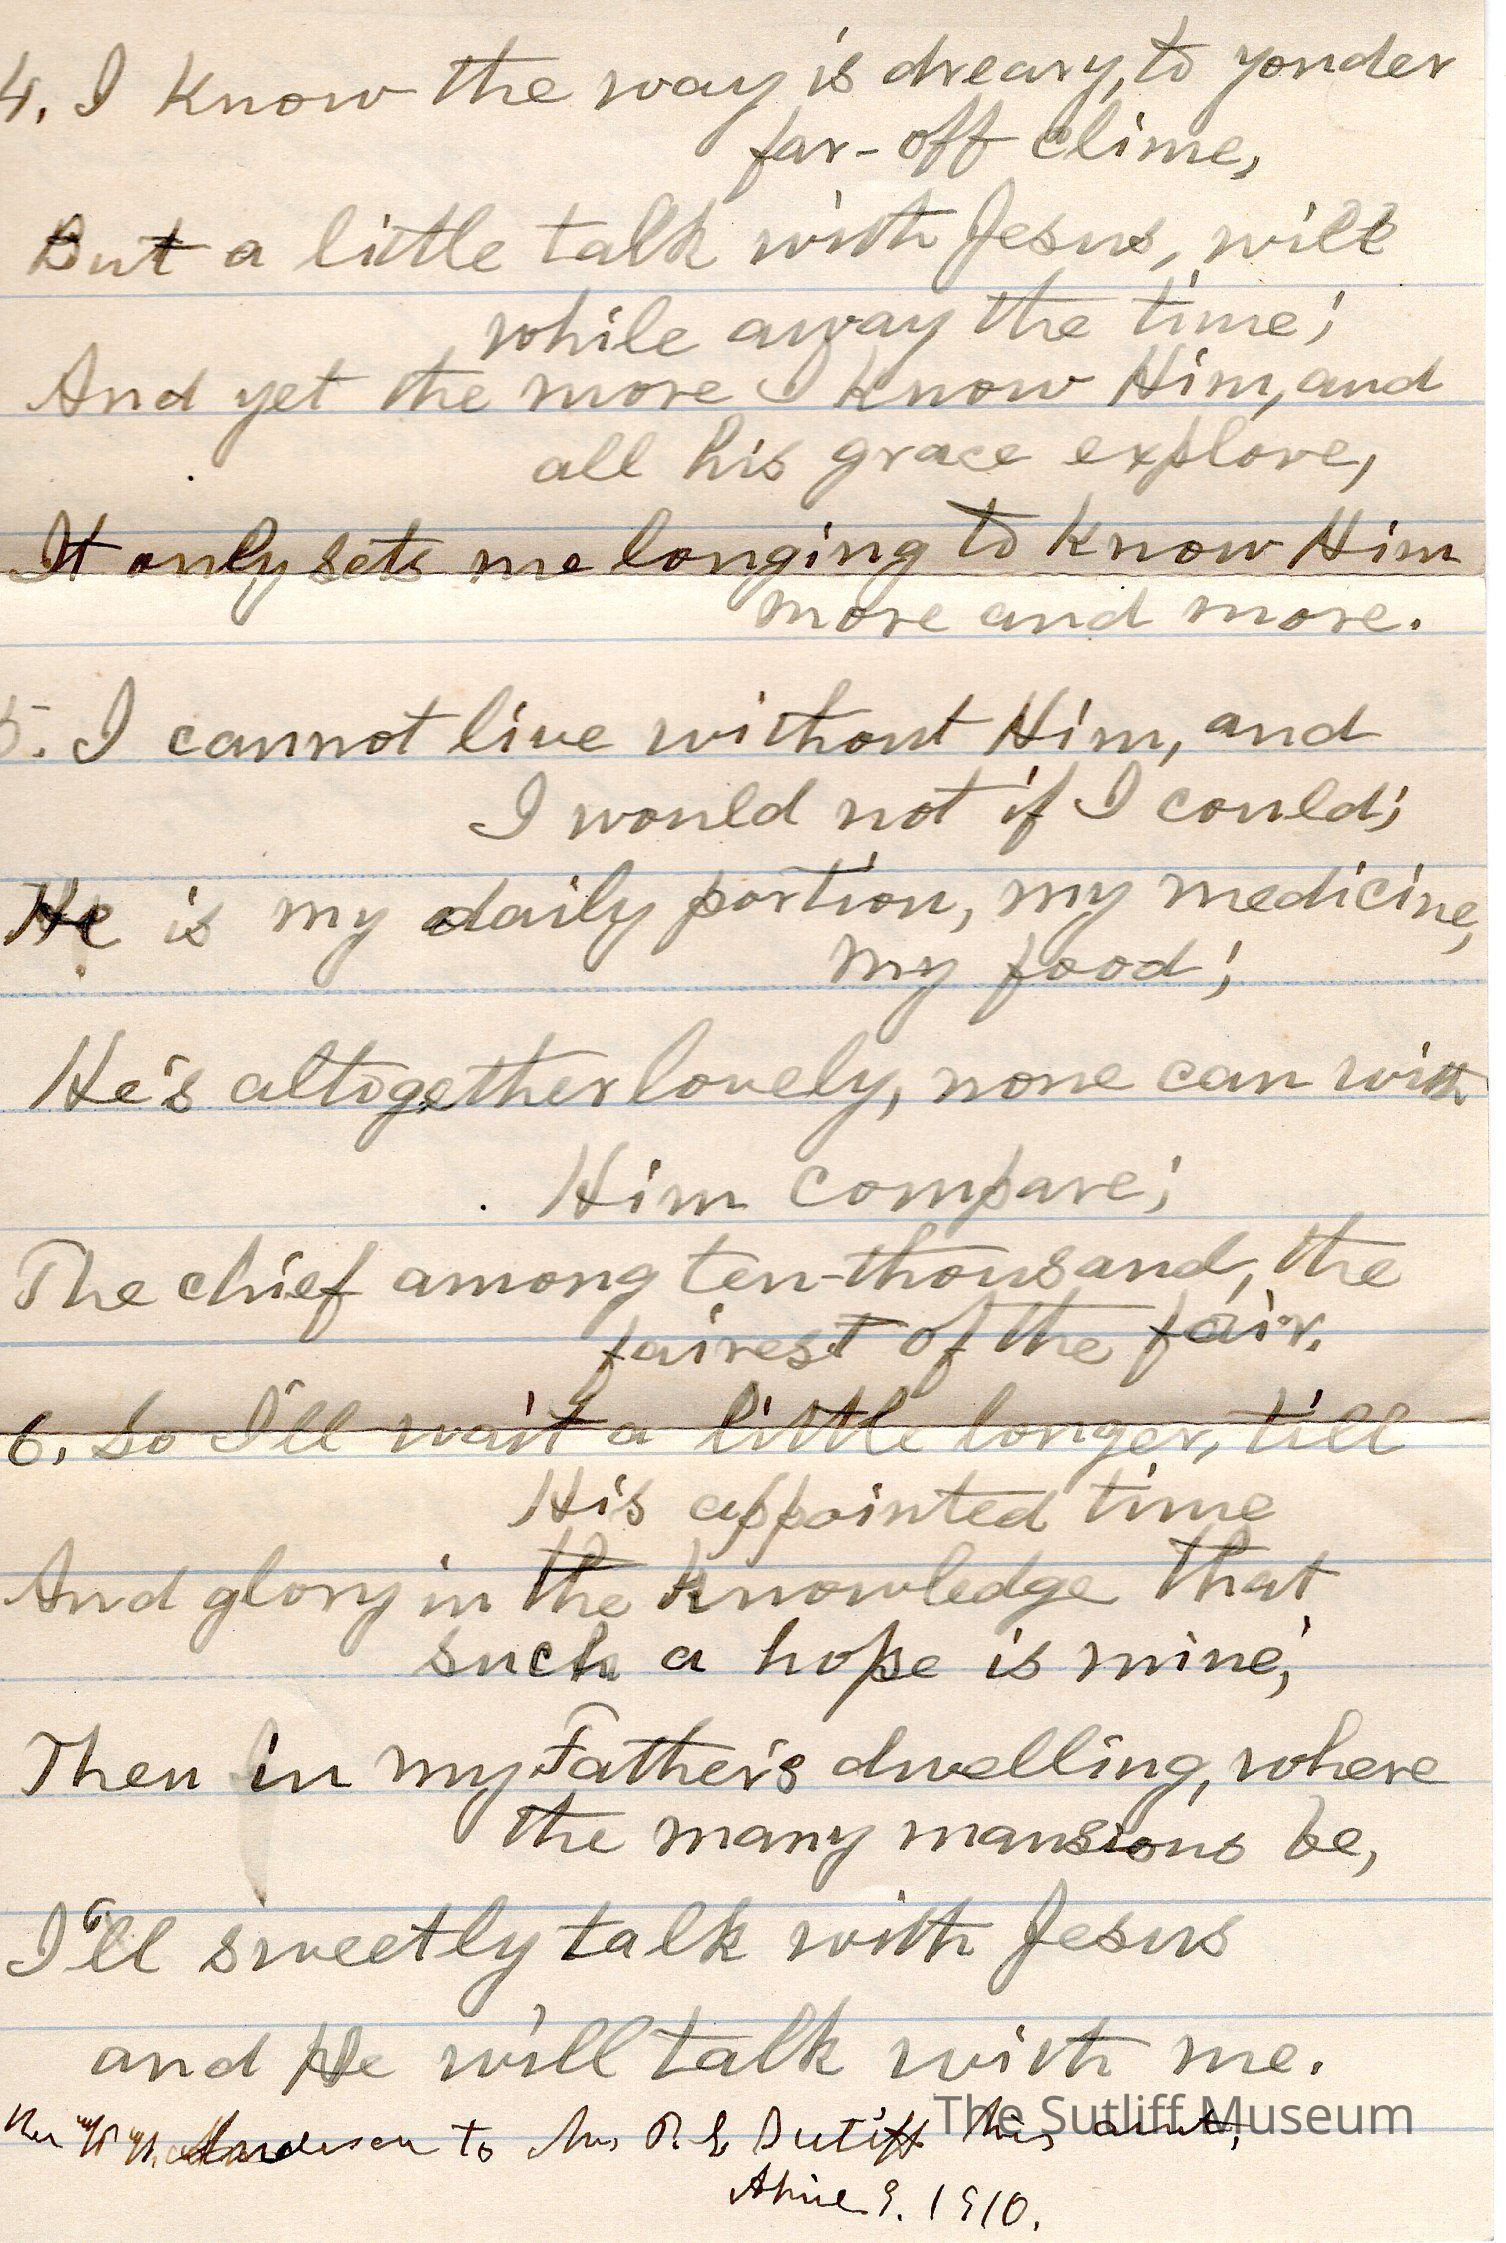 4. I know the way is dreary, to yonder
far-off clime,
But a little talk with Jesus, will
while away the time;
And yet the more I know Him, and
all his grace explore,
It only sets me longing to know Him
more and more.
5. I cannot live without Him, and
I would not if I could;
He is my daily portion, my medicine,
my food;
He's altogether lovely, none can with
Him compare;
The chief among ten-thousand, the
fairest of the fair.
6. So I'll wait a little longer, till
His appointed time
And glory in the knowledge that
such a hope is mine;
Then in my Father's dwelling, where
the many mansions be,
I'll sweetly talk with Jesus
and He will talk with me.
The Sutliff Museum
Anderson to Mrs P. E. Sutliff his aunt,
April 9. 1910.